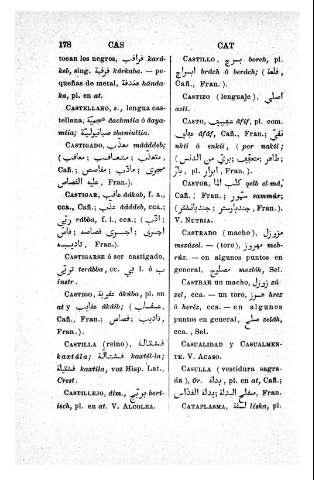 178 CAS CAT
tocan los negros, قراقب kará-
keb, sing. قرقبة kárkaba. — pe-
queñas de metal, هندقة hánda-
ka, pl. en at.
CASTELLANO, s., lengua cas-
tellana,
mía; صبانيولية sbaniulia.
CASTIGADO, معذب mâdddeb;
( معاقب ; متعاقب ; متعذب ,
Cañ.; مقاصص ; مأدب ; مجرى,
القصاص عليه, Fran.).
CASTIGAR, عاقب âákab, f. a.,
cca., Cañ.; عذب âáddeb, cca.;
ربى rábba, f. i., cca.; ( ادب ;
قاس ; قصاصه اجرى ; اجرى,
Fran.).
CASTIGARSE ó ser castigado,
تربى terábba, cc. في l. ó ب
instr.
CASTIGO, عقوبة âkúba, pl. en
at y عقايب âkáib; ( عقاب,
Cañ., Fran.; قصاص ; تاديب,
Fran.).
CASTILLA (reino), قشتالة
kaxtála; قشتلة kaxtél-la;
قشتيلة kaxtila, voz Hisp. Lat.,
Crest.
CASTILLEJO, dim., بريج beri-
tsch, pl. en at. V. ALCOLEA.
CASTILLO, برج borch, pl.
ابراج brách ó berách; ( قلعة,
Cañ., Fran.).
CASTIZO (lenguaje), اصلي
azlí.
CASTO, عفيف âfíf, pl. com.
عفاف âfáf, Cañ., Fran.; نقي
nkíi ó enkíi, ( por nakíi;
طاهر ; متعفف ; برى من الدنس,
بار, pl. ابرار, Fran.).
CASTOR, كلب الما qelb el-má,
Cañ., Fran.; سمور sammúr;
( جندبادستر ; جندبادشتر, Fran.).
V. NUTRIA.
CASTRADO (macho), مزوزل
mezúzel. — (toro), مهروز meh-
rúz. — en algunos puntos en
general, مصلوخ mezlúh, Sel.
CASTRAR un macho, زوزل zú-
zel, cca. — un toro, هرز hrez
ó heréz, cca. — en algunos
puntos en general, صلخ zeláh,
cca., Sel.
CASUALIDAD y CASUALMEN-
TE. V. ACASO.
CASULLA (vestidura sagra-
da), Or. بدلة, pl. en at, Cañ.;
بدلة القداس ; البدلة, Fran.
CATAPLASMA, لسقة léska, pl.